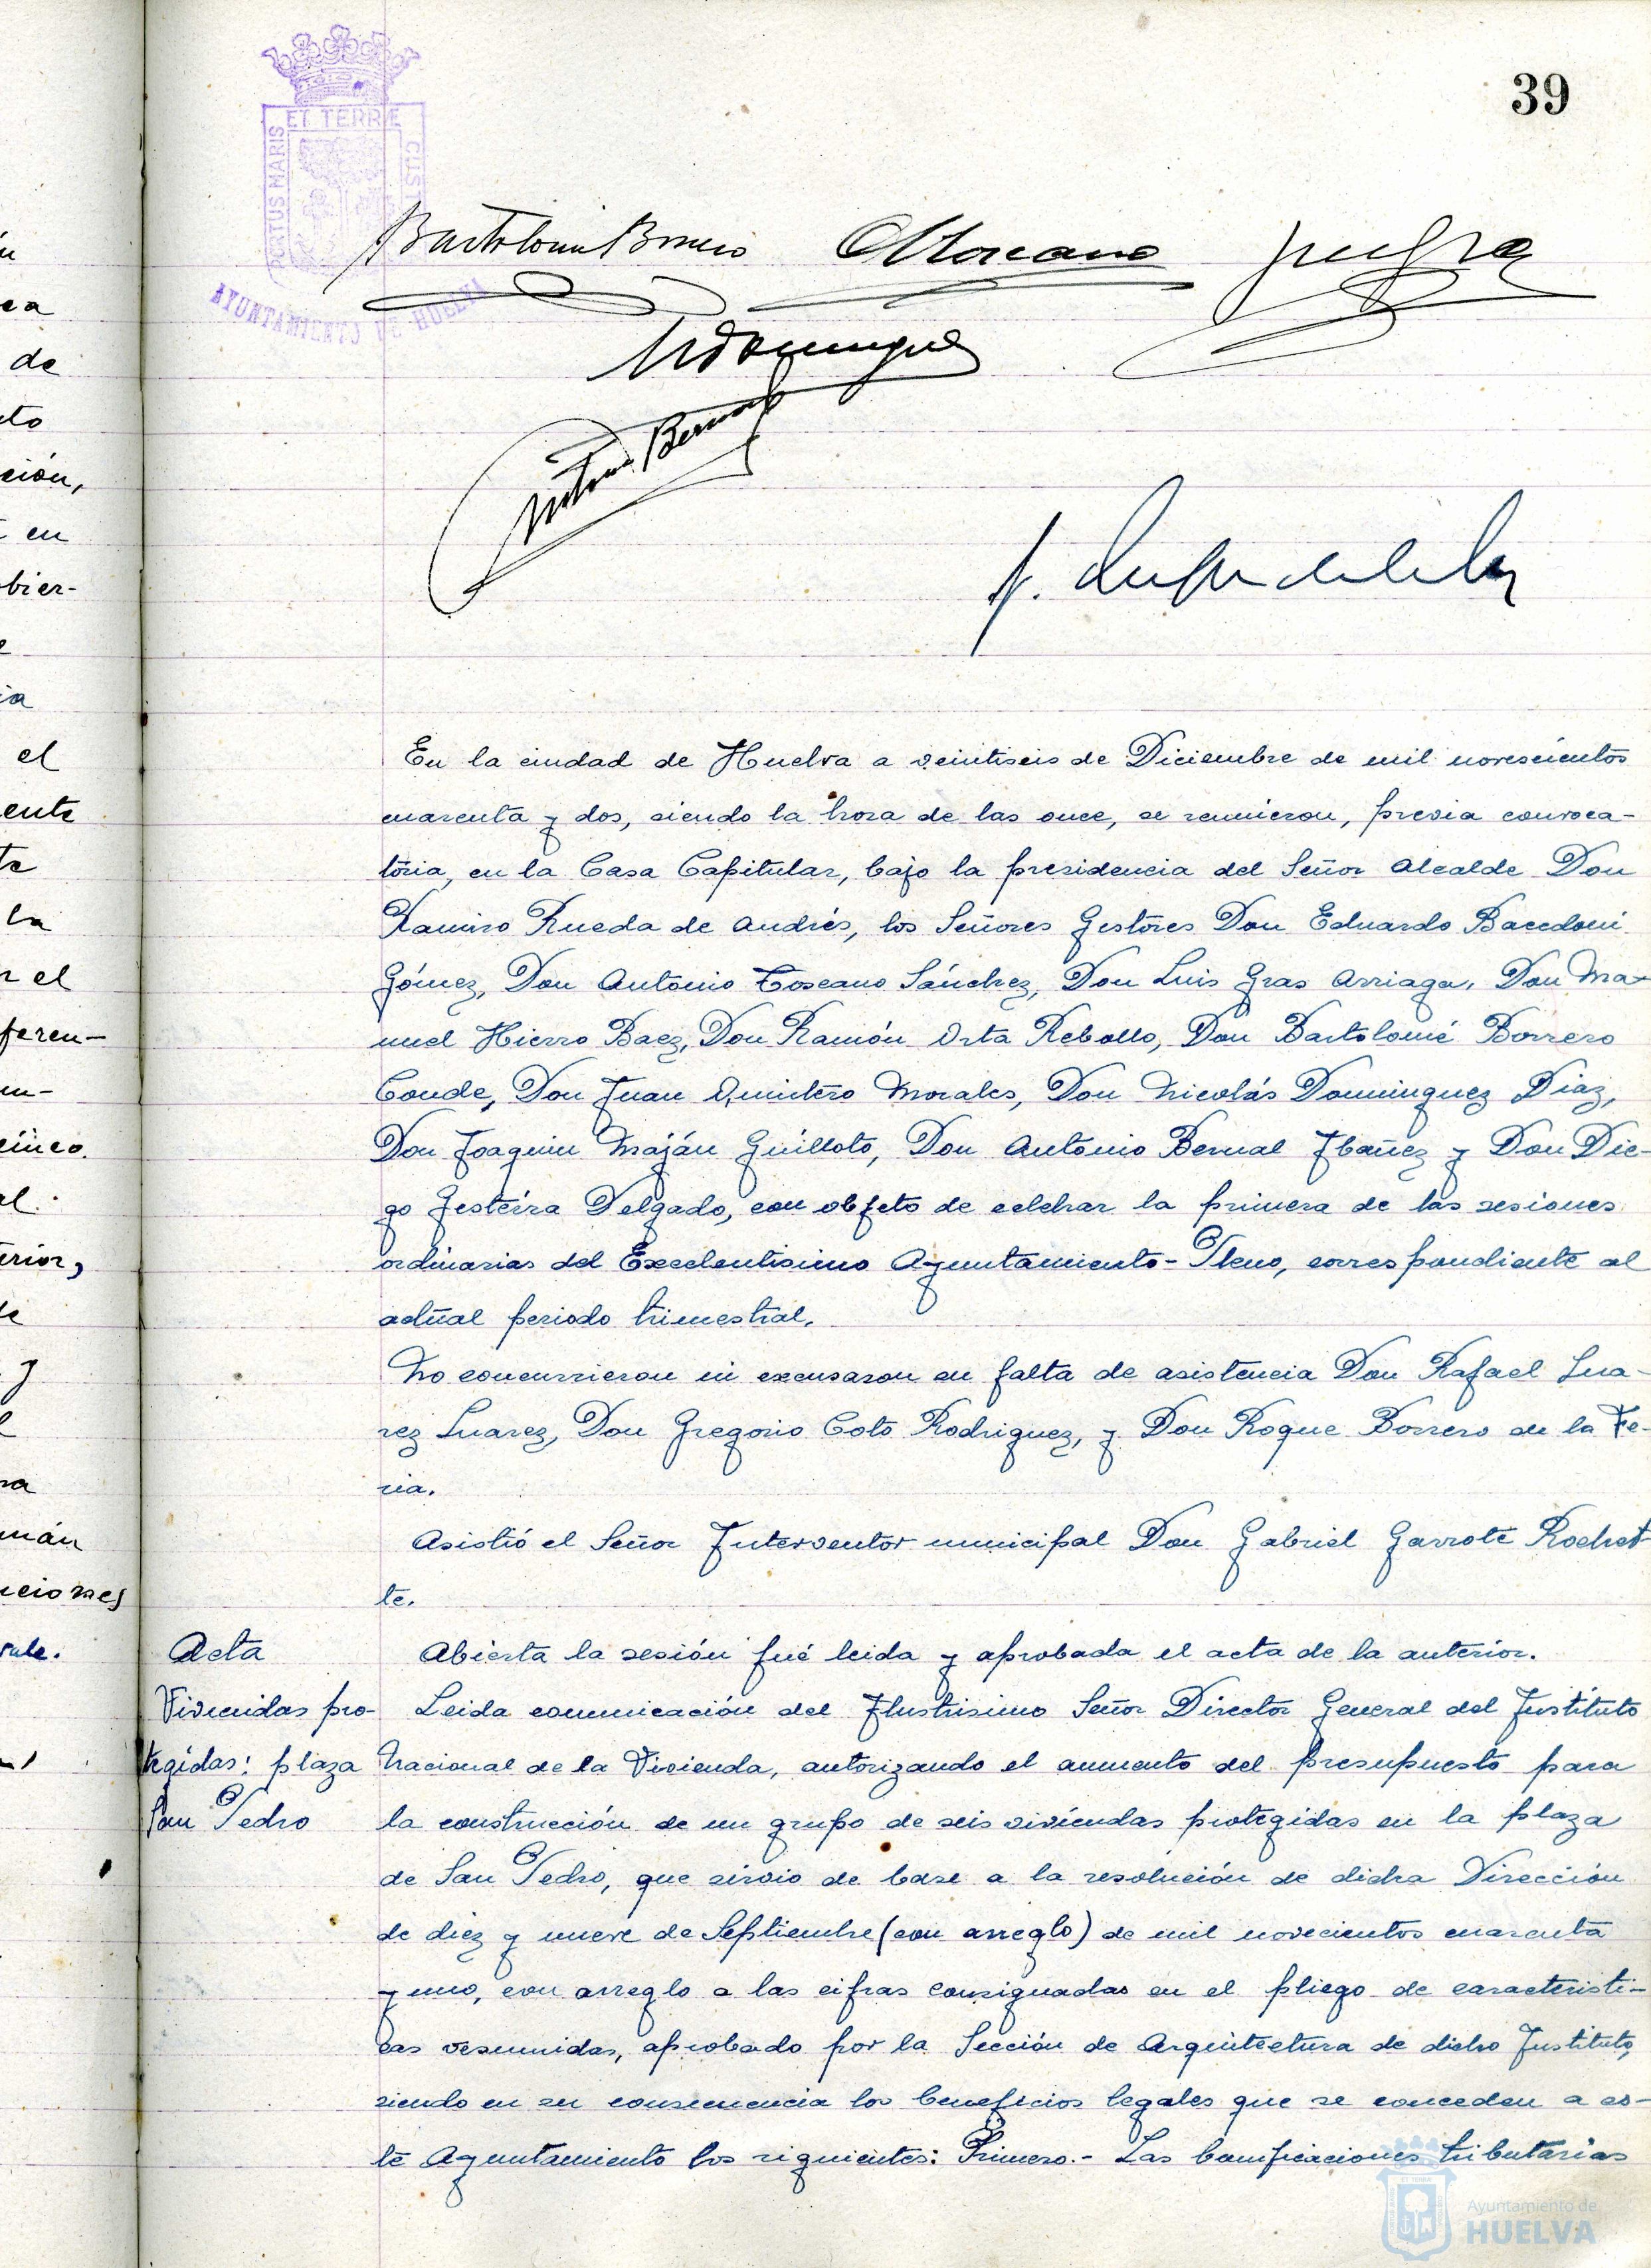 39
PORTUS MARIS ET TERRÆ CUSTO
AYUNTAMIENTO DE HUELVA
Bartolomé Borrero
NDominguez
Antonio Bernal
de
ción,
en
bier-
el
ente
la
el
feren-
cinco.
erior,
y
mán
ciones
vale.
En la ciudad de Huelva a veintiseis de Diciembre de mil novescientos
cuarenta y dos, siendo la hora de las once, se reunieron, previa convoca-
toria, en la Casa Capitular, bajo la presidencia del Señor Alcalde Don
Ramiro Rueda de Andrés, los Señores Gestores Don Eduardo Bacedoni
Gómez, Don Antonio Toscano Sánchez, Don Luis Gras Arriaga, Don Ma-
nuel Hierro Baez, Don Ramón Orta Rebollo, Don Bartolomé Borrero
Conde, Don Juan Quintero Morales, Don Nicolás Dominguez Diaz,
Don Joaquin Maján Guilloto, Don Antonio Bernal Ibañez y Don Die-
go Gesteira Delgado, con objeto de celebrar la primera de las sesiones
ordinarias del Excelentisimo Ayuntamiento-Pleno, correspondiente al
actual periodo trimestral.
No concurrieron ni excusaron su falta de asistencia Don Rafael Sua-
rez Suarez, Don Gregorio Coto Rodriguez, y Don Roque Borrero de la Fe-
ria.
Asistió el Señor Interventor municipal Don Gabriel Garrote Rochet
te.
Acta
Abierta la sesión fué leida y aprobada el acta de la anterior.
Viviendas pro-
tegidas: plaza
San Pedro
Leida comunicación del Ilustrisimo Señor Director General del Instituto
Nacional de la Vivienda, autorizando el aumento del presupuesto para
la construcción de un grupo de seis viviendas protegidas en la plaza
de San Pedro, que sirvio de base a la resolución de dicha Dirección
de diez y nueve de Septiembre (con arreglo) de mil novecientos cuarenta
y uno, con arreglo a las cifras consignadas en el pliego de caracteristi-
cas resumidas, aprobado por la Sección de Arquitectura de dicho Instituto,
siendo en su consecuencia los beneficios legales que se conceden a es-
te Ayuntamiento los siguientes: Primero.- Las bonificaciones tributarias
Ayuntamiento de
HUELVA